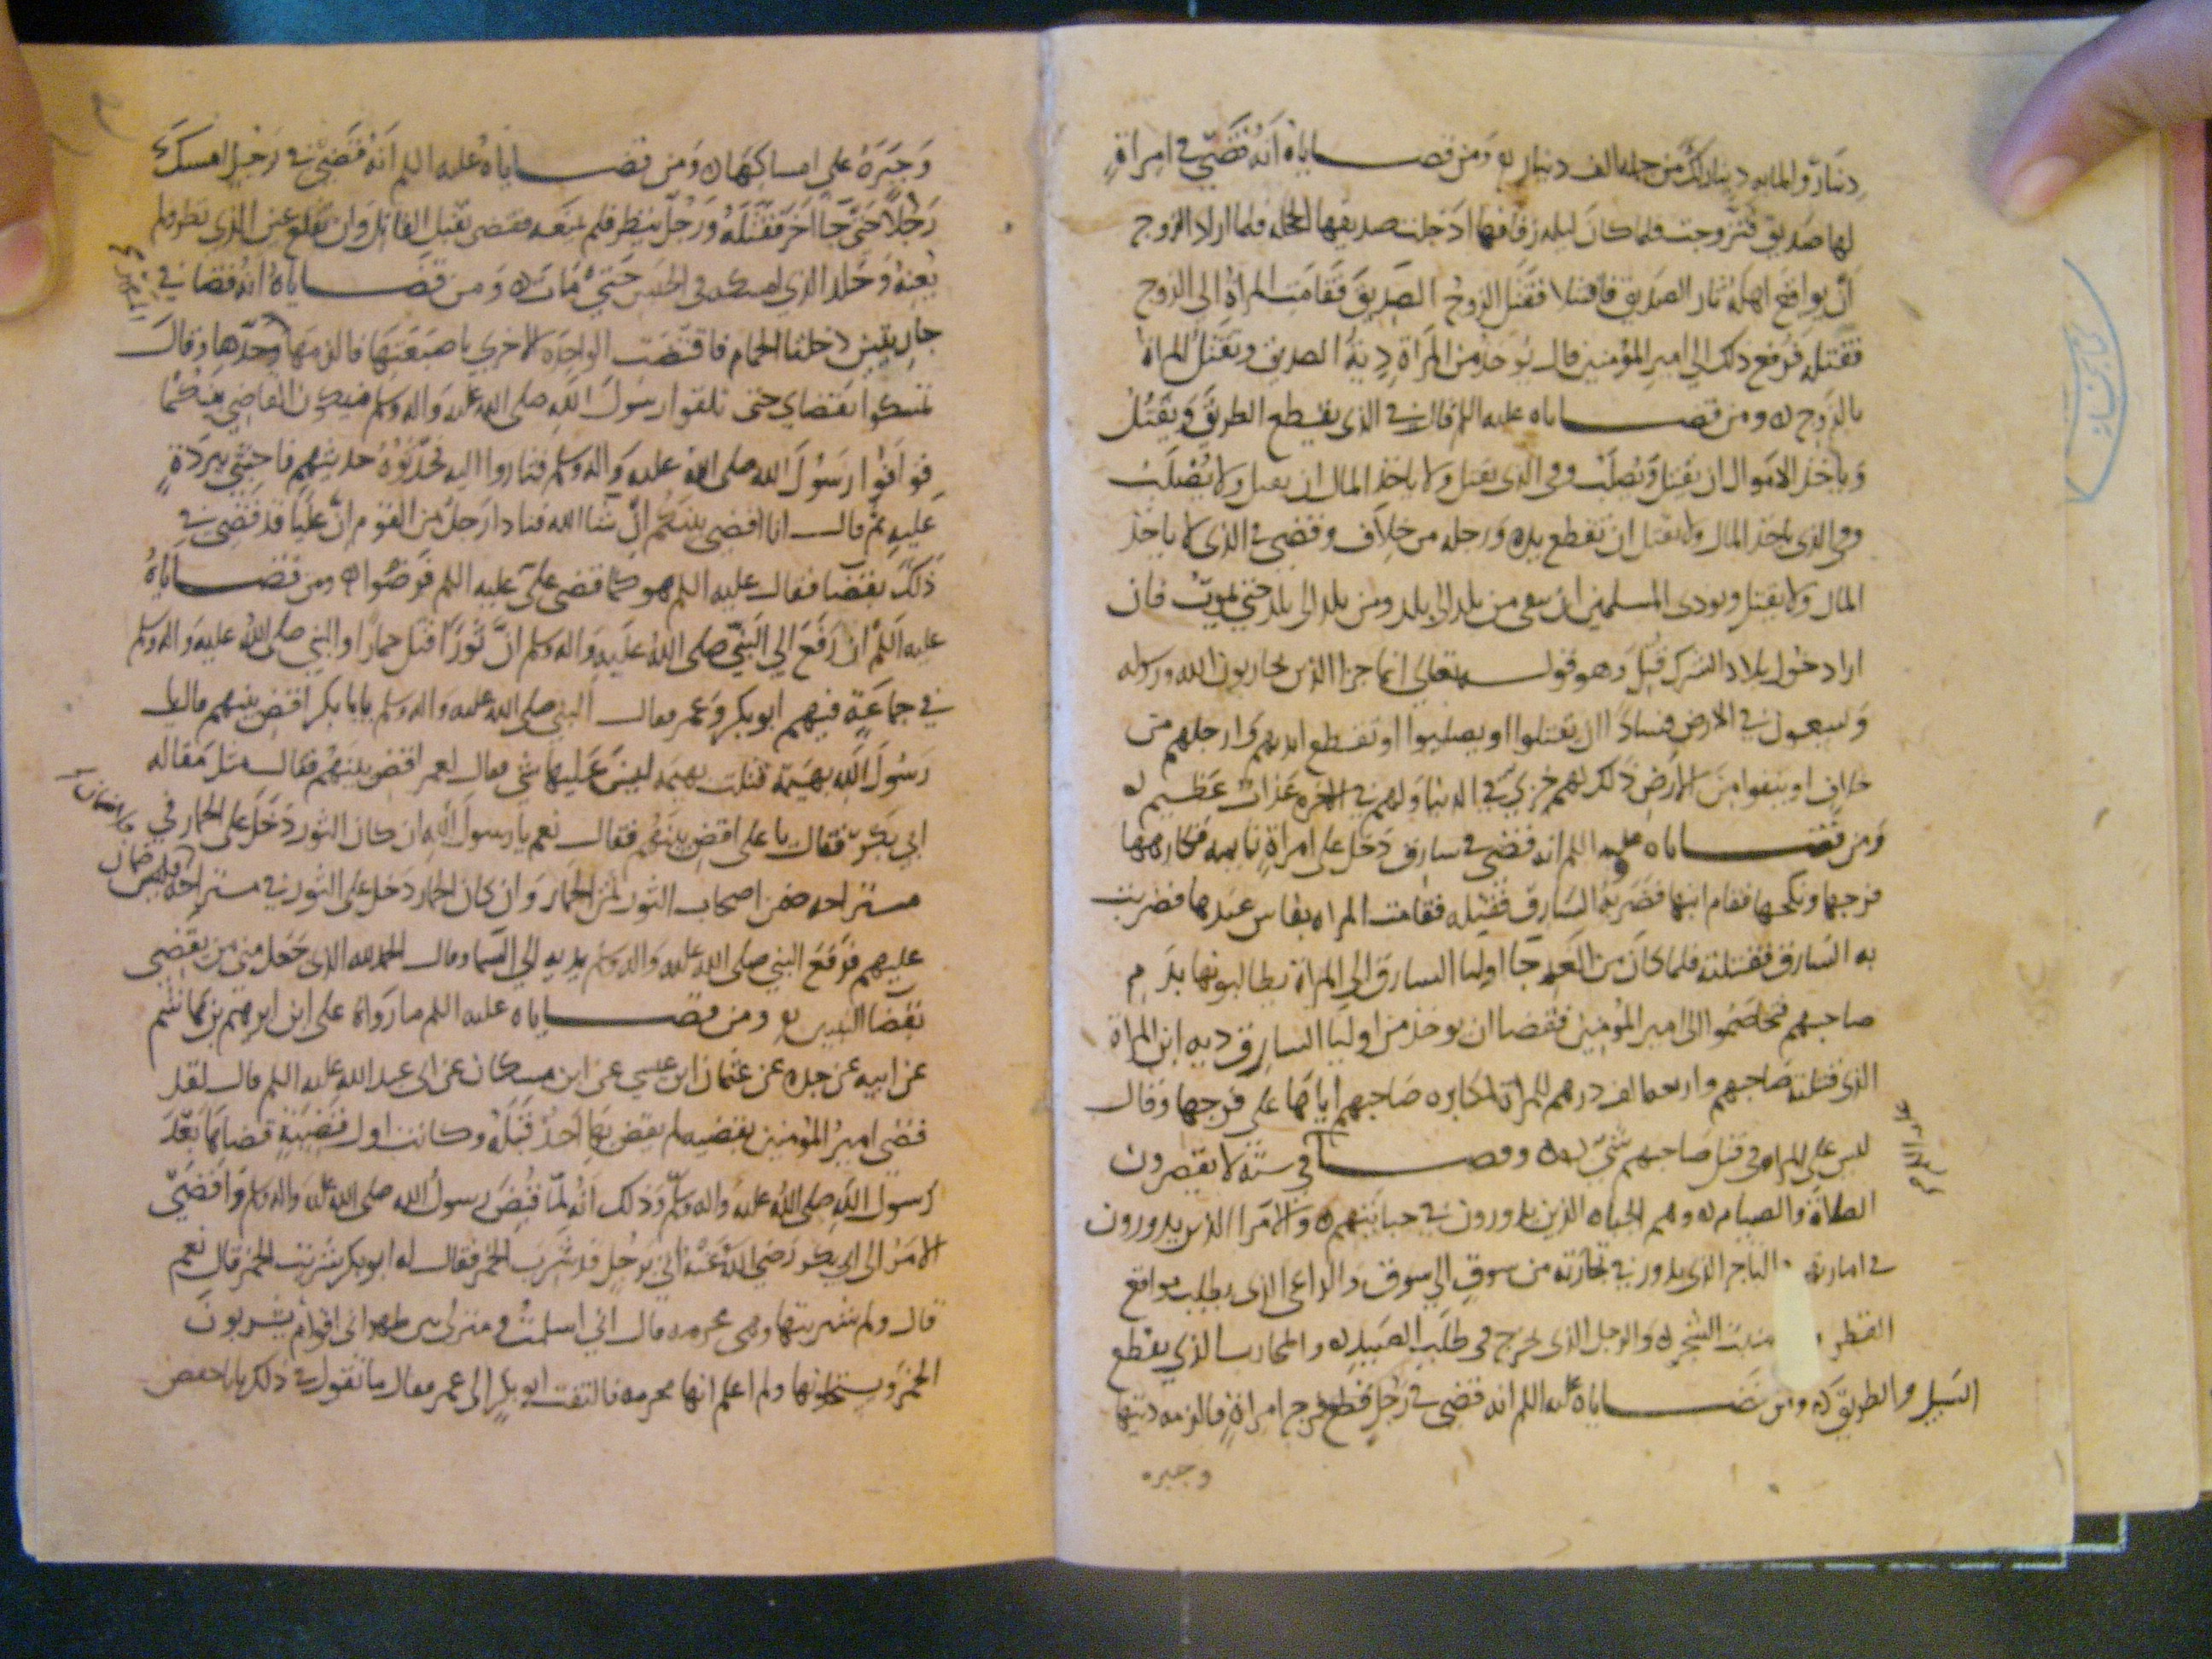 دينار والمايه دينار لك من جمله الف دينار ومن قضاياه أنه قضي في امراة
لها صديق فتزوجت فلما كان ليله زفافها ادخلت صديقها الحجله فلما اراد الزوج
أن يواقع اهله ثار الصديق فاقتتلا فقتل الزوج الصديق فقامت المراة الي الزوج
فقتلته فرفع ذلك الي امير المؤمنين قال يوخذ من المراة دية الصديق وتقتل المراة
بالزوج ومن قضاياه عليه السلم قال في الذي يقطع الطريق ويقتل
وياخذ الاموال ان يقتل ويصلب وفي الذي يقتل ولا ياخذ المال ان يقتل ولا يصلب
وفي الذي ياخذ المال ولا يقتل ان تقطع يده ورجله من خلاف وقضي في الذي لا ياخذ
المال ولا يقتل ويودي المسلمين ان ينفي من بلد الي بلد ومن بلد الي بلد حتي يموت فان
اراد دخول بلاد الشرك قتل وهو قوله تعالي انما جزا الذين يحاربون الله ورسوله
ويسعون في الارض فسادا ان يقتلوا او يصلبوا او تقطع ايديهم وارجلهم من
خلاف او ينفوا من الارض ذلك لهم خزي في الدنيا ولهم في الاخره عذاب عظيم
ومن قضاياه عليه السلم انه قضي في سارق دخل علي امراة نايمه فكارهها
فرجها ونكحها فقام ابنها فضربه السارق فقتله فقامت المراه بفاس عندها فضربت
به السارق فقتلته فلما كان من الغد جا اوليا السارق الي المراة يطالبونها بدم
صاحبهم فتخاصموا الي امير المؤمنين فقضا ان يوخذ من اوليا السارق ديه ابن المراة
الذي قتلته صاحبهم واربعه الف درهم للمراة لمكابره صاحبهم اياها علي فرجها وقال
ليس علي المراه في قتل صاحبهم شي وقضا في ستة لا يقصرون
الصلاة والصيام وهم الجباه الذين يدورون في جبايتهم والامرا الذين يدورون
في امارتهم التاجر الذي يدور في تجارته من سوق الي سوق والراعي الذي يطلب مواقع
القطر منبت الشجر والرجل الذي يخرج في طلب الصيد والمحارب الذي يقطع
السبيل والطريق ومن قضاياه عليه السلم انه قضي في رجل قطع فرج امراة فالزمه ديتها
وجبره
وجبره علي امساكها ومن قضاياه عليه السلم انه قضي في رجل امسك
رجلا حتي جا اخر فقتله ورجل ينظر فلم يمنعه فقضي بقتل القاتل وان تقلع عين الذي نظر فلم
يعنه وخلد الذي امسكه في الحبس حتي مات ومن قضاياه انه قضا في
جاريتين دخلتا الحمام فاقتضت الواحده الاخري باصبعها فالزمها وحدها وقال
تمسكوا بقضاي حتي تلقوا رسول الله صلى الله عليه واله وسلم فيكون القاضي بينكما
فوافوا رسول الله صلى الله عليه واله وسلم فثاروا اليه فحدثوه حديثهم فاحتبي ببردة
عليه ثم قال انا اقضي بينكم ان شا الله فنادا رجل من القوم ان عليا قد قضي في
ذلك بقضا فقال عليه السلم هو كما قضي علي عليه السلم فرضوا ومن قضاياه
عليه السلم ان رفع الي النبي صلى الله عليه واله وسلم ان ثورا قتل حمارا والنبي صلى الله عليه واله وسلم
في جماعة فيهم ابو بكر وعمر فقال النبي صلى الله عليه واله وسلم يابا بكر اقض بينهم قال يا
رسول الله بهيمة قتلت بهيمه ليس عليها شي فقال لعمر اقض بينهم فقال مثل مقاله
ابي بكر فقال يا علي اقض بينهم فقال نعم يا رسول الله ان كان الثور دخل علي الحمار في
مستراحه ضمن اصحاب الثور ثمن الحمار وان كان الحمار دخل علي الثور في مستراحه فلا ضمان
عليهم فرفع النبي صلى الله عليه واله وسلم يديه الي السما وقال الحمد لله الذي جعل مني من يقضي
بقضا النبيين ومن قضاياه عليه السلم ما رواه علي ابن ابرهيم بن هاشم
عن ابيه عن جده عن عثمان ابن عيسي عن ابن مسكان عن ابي عبد الله عليه السلم قال لقد
قضي امير المؤمنين بقضيه لم يقض بها احد قبله وكانت اول قضية قضاها بعد
رسول الله صلى الله عليه واله وسلم وذلك انه لما قبض رسول الله صلى الله عليه واله وسلم وافضي
الامر الي ابي بكر رضي الله عنه اتي برجل قد شرب الخمر فقال له ابو بكر شربت الخمر قال نعم
قال ولم شربتها وهي محرمه قال اني اسلمت ومنزلي بين ظهراني اقوام يشربون
الخمر ويستحلونها ولم اعلم انها محرمه فالتفت ابو بكر الي عمر فقال ما تقول في ذلك يابا حفص